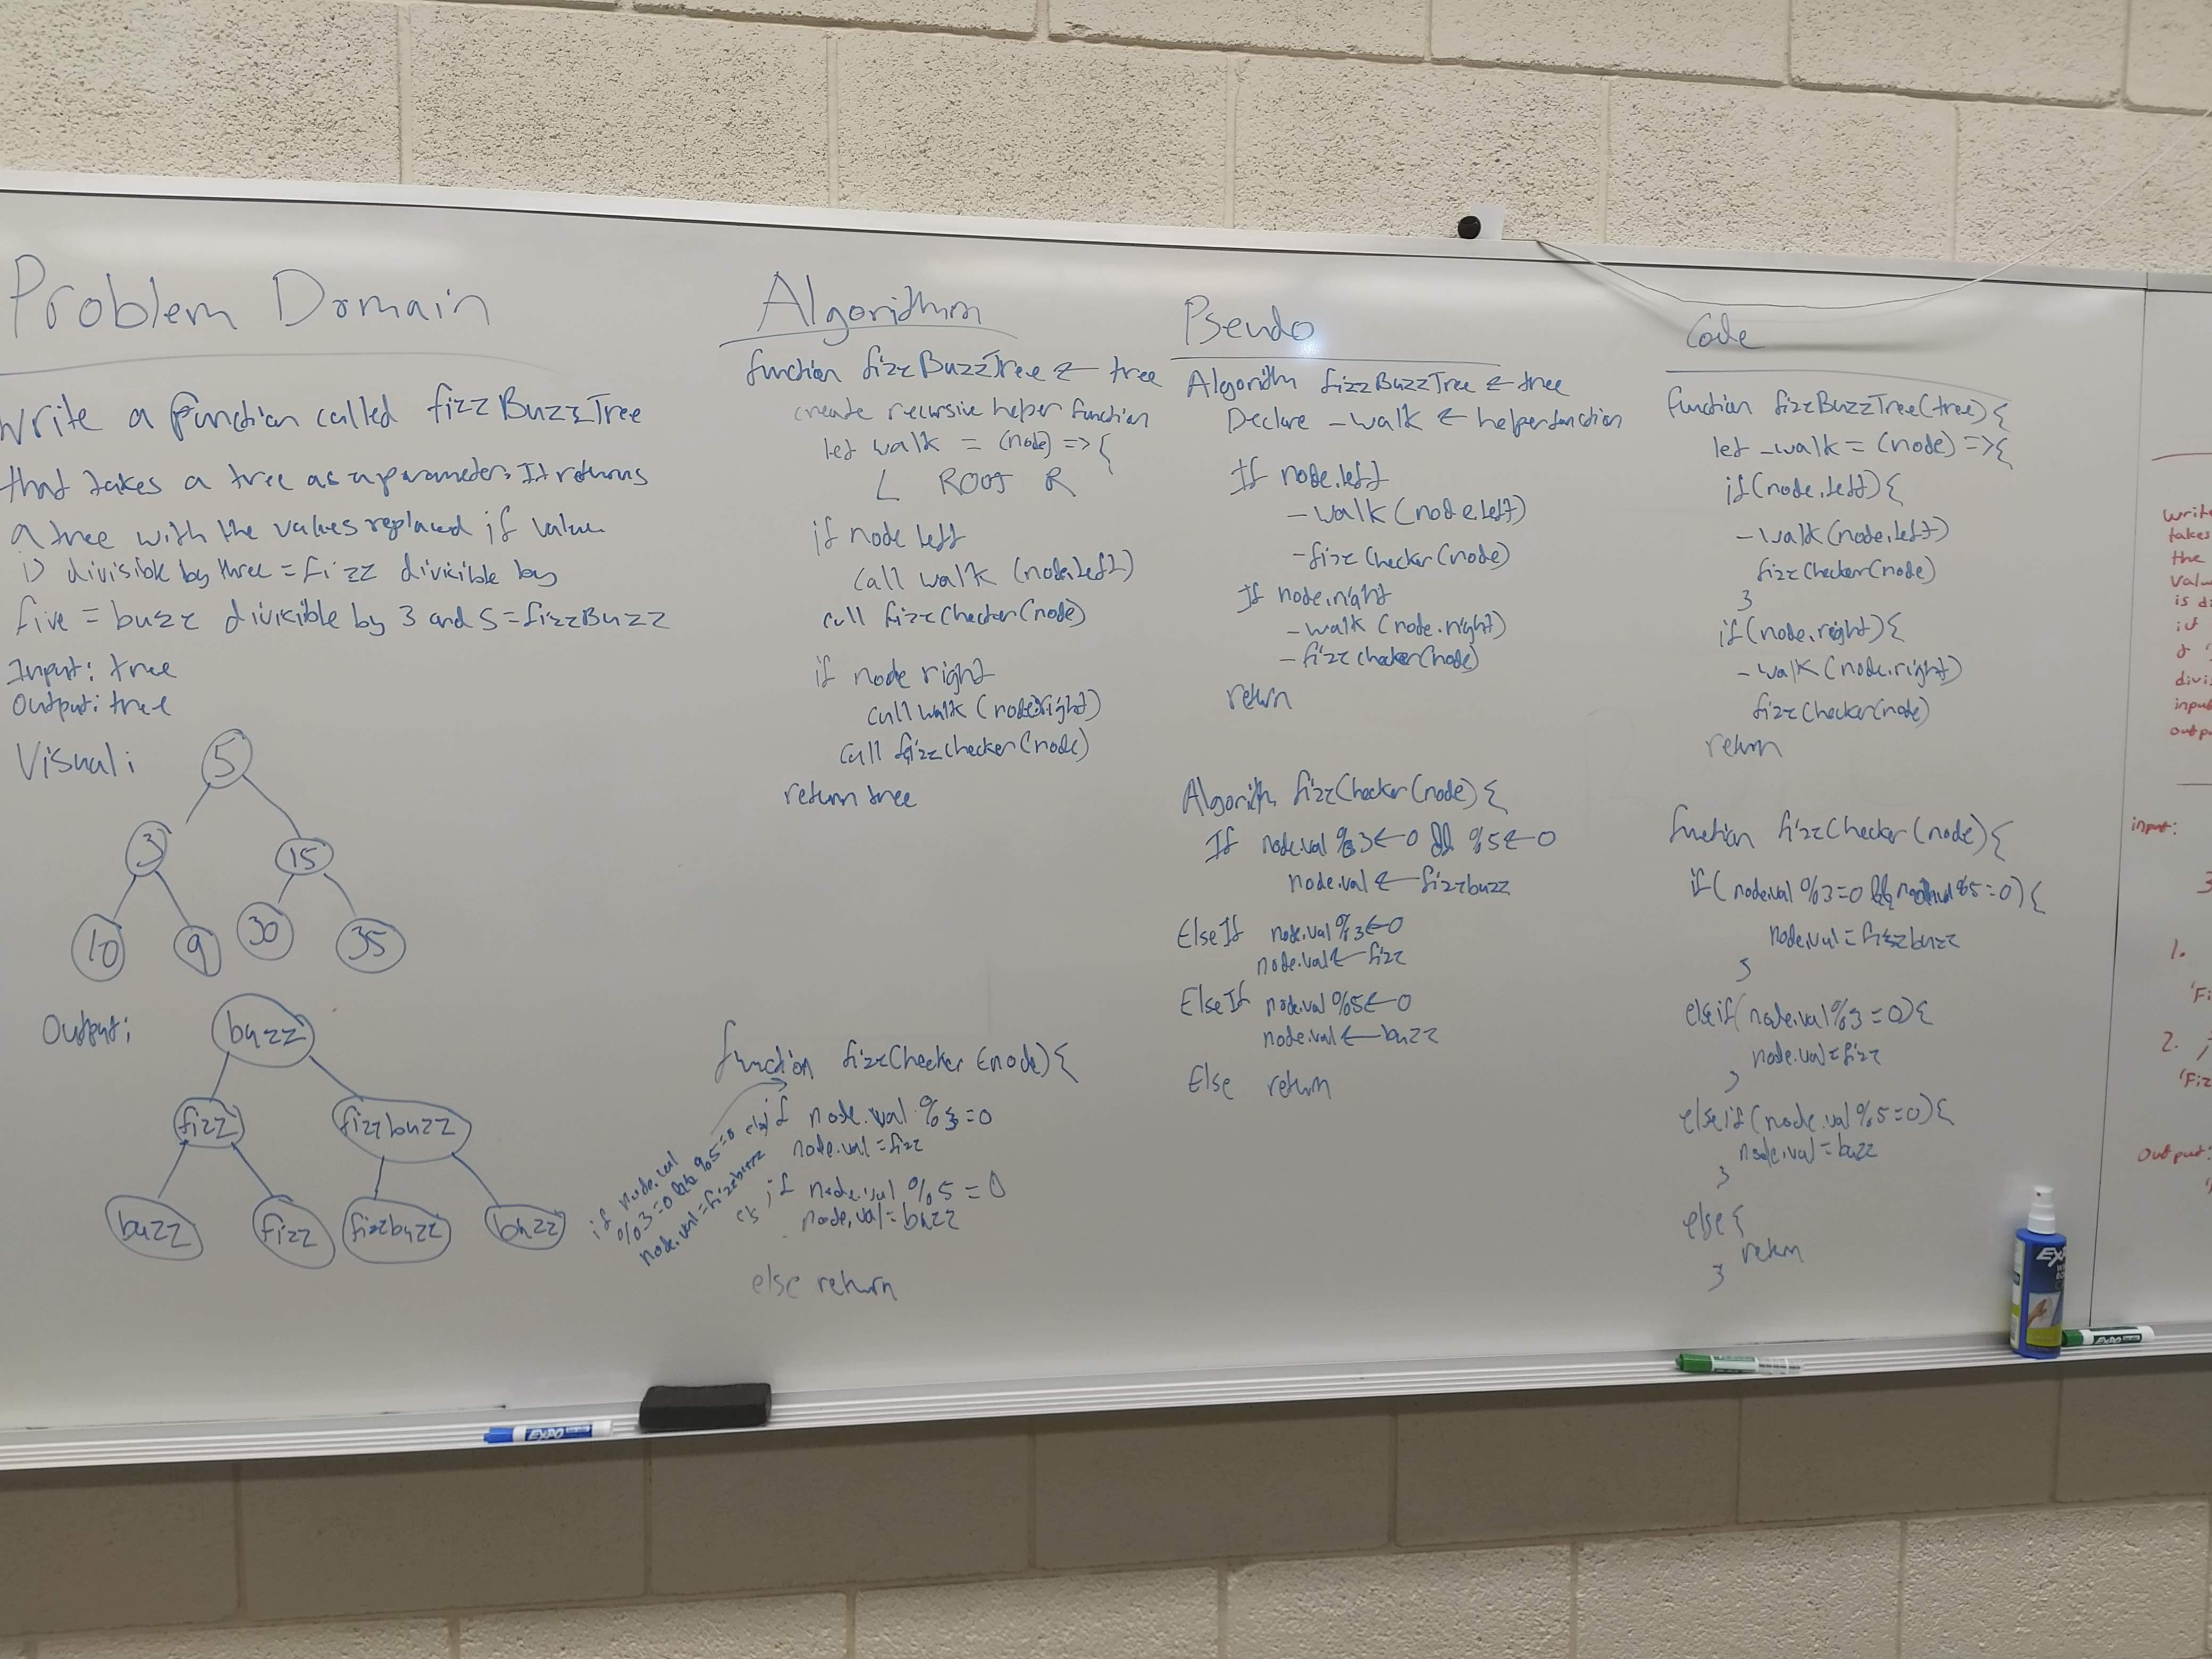 Problem Domain
Write a function called fizzBuzzTree
that takes a tree as a parameter. It returns
a tree with the values replaced if value
is divisible by three = fizz divisible by
five = buzz divisible by 3 and 5 = fizzBuzz
Input: tree
Output: tree
Visual:
5
3
15
10
9
30
35
Output:
buzz
fizz
fizzbuzz
buzz
fizz
fizzbuzz
buzz
Algorithm
function fizzBuzzTree ← tree
create recursive helper function
let walk = (node) => {
L ROOT R
if node left
call walk (node.left)
call fizzChecker(node)
if node right
call walk (node.right)
call fizzchecker(node)
return tree
function fizzChecker (node) {
if node.val
%3=0 && %5=0
node.val = fizzbuzz
if node.val % 3 = 0
node.val = fizz
if node.val % 5 = 0
node.val = buzz
else return
Pseudo
Algorithm fizzBuzzTree ← tree
Declare -walk ← helperfunction
If node.left
-walk (node.left)
-fizzChecker(node)
If node.right
-walk (node.right)
-fizzchecker(node)
return
fizzChecker(node) {
If node.val %3 ← 0 && %5 ← 0
node.val ← fizzbuzz
ElseIf node.val %3 ← 0
node.val ← fizz
ElseIf node.val %5 ← 0
node.val ← buzz
Else return
Code
function fizzBuzzTree(tree) {
let -walk = (node) => {
if(node.left) {
-walk(node.left)
fizzChecker(node)
}
if(node.right) {
-walk(node.right)
fizzChecker(node)
return
function fizzChecker (node) {
if( node.val %3=0 && %5=0) {
node.val = fizzbuzz
}
elseif( node.val %3 = 0) {
node.val = fizz
}
elseif (node.val %5=0) {
node.val = buzz
}
else {
return
}
write
takes
the
is
input:
3
1.
2.
output:
EXPO
EXPO